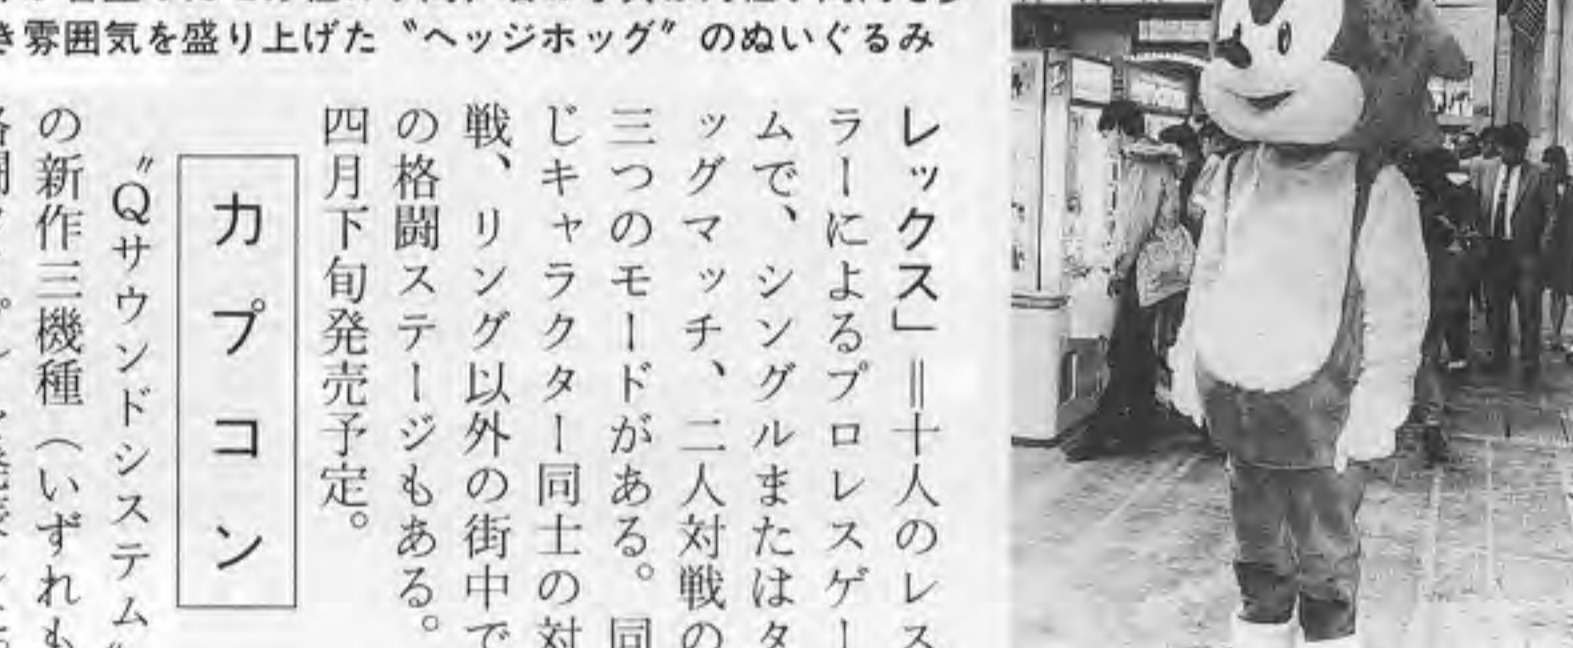 き雰囲気を盛り上げた〝ヘッジホッグ〟のぬいぐるみ
レックス」＝十人のレス
ラーによるプロレスゲー
ムで、シングルまたはタ
ッグマッチ、二人対戦の
三つのモードがある。同
じキャラクター同士の対
戦、リング以外の街中で
の格闘ステージもある。
四月下旬発売予定。
カプコン
〝Qサウンドシステム〟
の新作三機種（いずれも